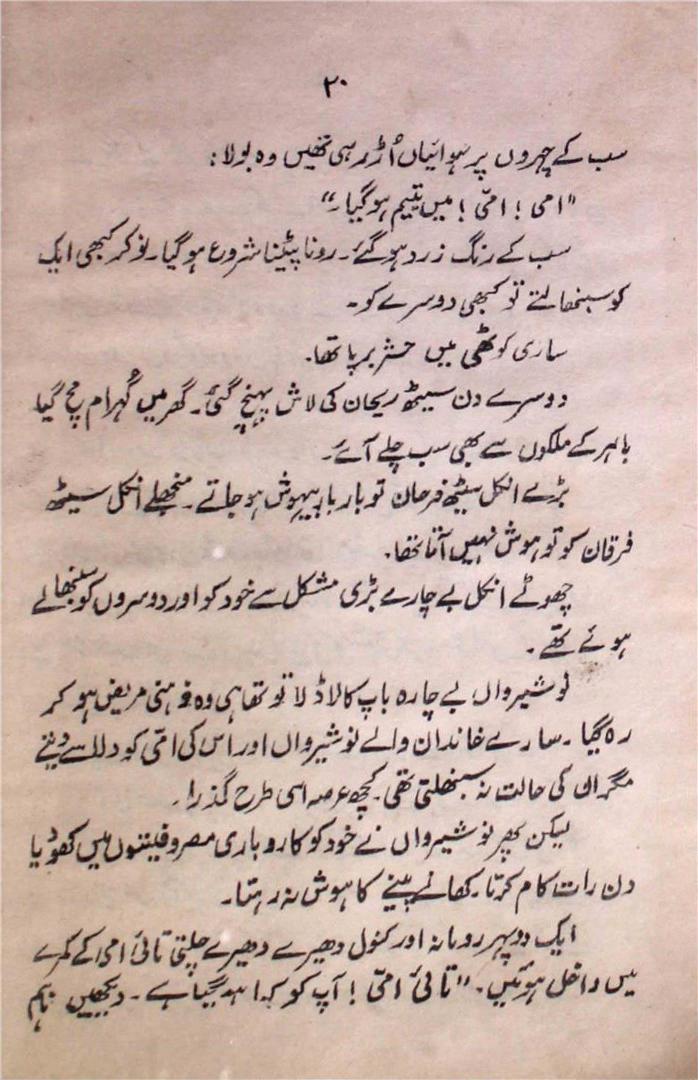 ۲۰
سب کے چہروں پر ہوائیاں اُڑ رہی تھیں وہ بولا:
"امی! امّی! میں یتیم ہو گیا۔"
سب کے رنگ زرد ہو گئے۔ رونا پیٹنا شروع ہو گیا۔ نوکر کبھی ایک
کو سنبھالتے تو کبھی دوسرے کو۔
ساری کوٹھی میں حشر برپا تھا۔
دوسرے دن سیٹھ ریحان کی لاش پہنچ گئی۔ گھر میں کُہرام مچ گیا
باہر کے ملکوں سے بھی سب چلے آئے۔
بڑے انکل سیٹھ فرحان تو بار بار بیہوش ہو جاتے۔ منجھلے انکل سیٹھ
فرقان کو تو ہوش نہیں آتا تھا۔
چھوٹے انکل بے چارے بڑی مشکل سے خود کو اور دوسروں کو سنبھالے
ہوئے تھے۔
نوشیرواں بے چارہ باپ کا لاڈلا تو تھا ہی وہ ذہنی مریض ہو کر
رہ گیا۔ سارے خاندان والے نوشیرواں اور اس کی امّی کو دلاسے دیتے
مگر ان کی حالت نہ سنبھلتی تھی۔ کچھ عرصہ اسی طرح گذرا۔
لیکن پھر نوشیرواں نے خود کو کاروباری مصروفیتوں میں کھو دیا
دن رات کام کرتا۔ کھانے پینے کا ہوش نہ رہتا۔
ایک دوپہر رومانہ اور کنول دھیرے دھیرے چلتی تائی امی کے کمرے
میں داخل ہوئیں۔ "تائی امّی! آپ کو کیا ہو گیا ہے۔ دیکھیں ہم